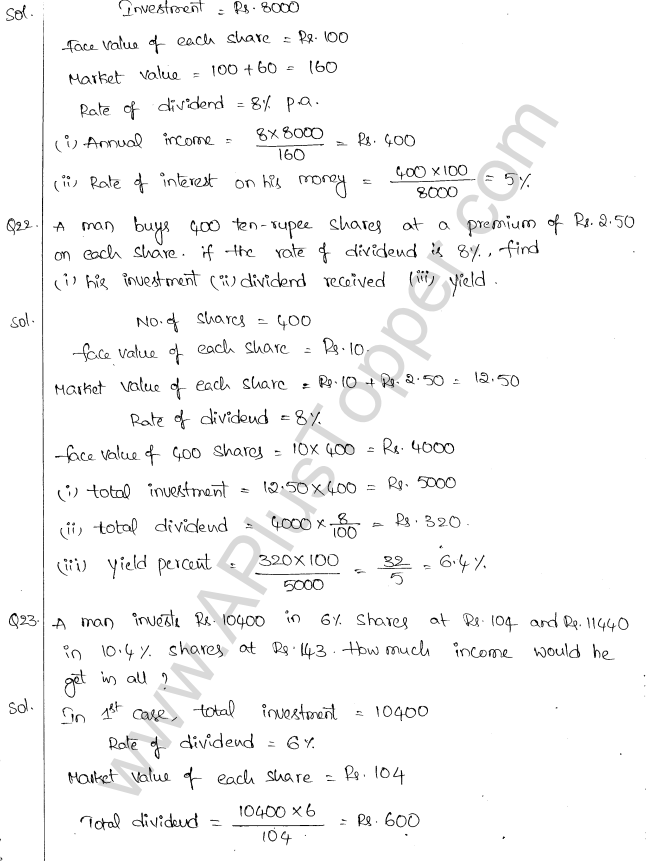 Sol. Investment = Rs. 8000
Face value of each share = Rs. 100
Market value = 100 + 60 = 160
Rate of dividend = 8% p.a.
(i) Annual income = 8 × 8000 / 160 = Rs. 400
(ii) Rate of interest on his money = 400 × 100 / 8000 = 5%
Q22. A man buys 400 ten-rupee shares at a premium of Rs. 2.50
on each share. if the rate of dividend is 8%, find
(i) his investment (ii) dividend received (iii) yield.
Sol. No. of shares = 400
face value of each share = Rs. 10.
Market value of each share = Rs. 10 + Rs. 2.50 = 12.50
Rate of dividend = 8%
face value of 400 shares = 10 × 400 = Rs. 4000
(i) total investment = 12.50 × 400 = Rs. 5000
(ii) total dividend = 4000 × 8/100 = Rs. 320.
(iii) Yield percent = 320 × 100 / 5000 = 32/5 = 6.4%
Q23. A man invests Rs. 10400 in 6% shares at Rs. 104 and Rs. 11440
in 10.4% shares at Rs. 143. How much income would he
get in all?
Sol. In 1st case, total investment = 10400
Rate of dividend = 6%
Market value of each share = Rs. 104
Total dividend = 10400 × 6 / 104 = Rs. 600
www.APlusTopper.com